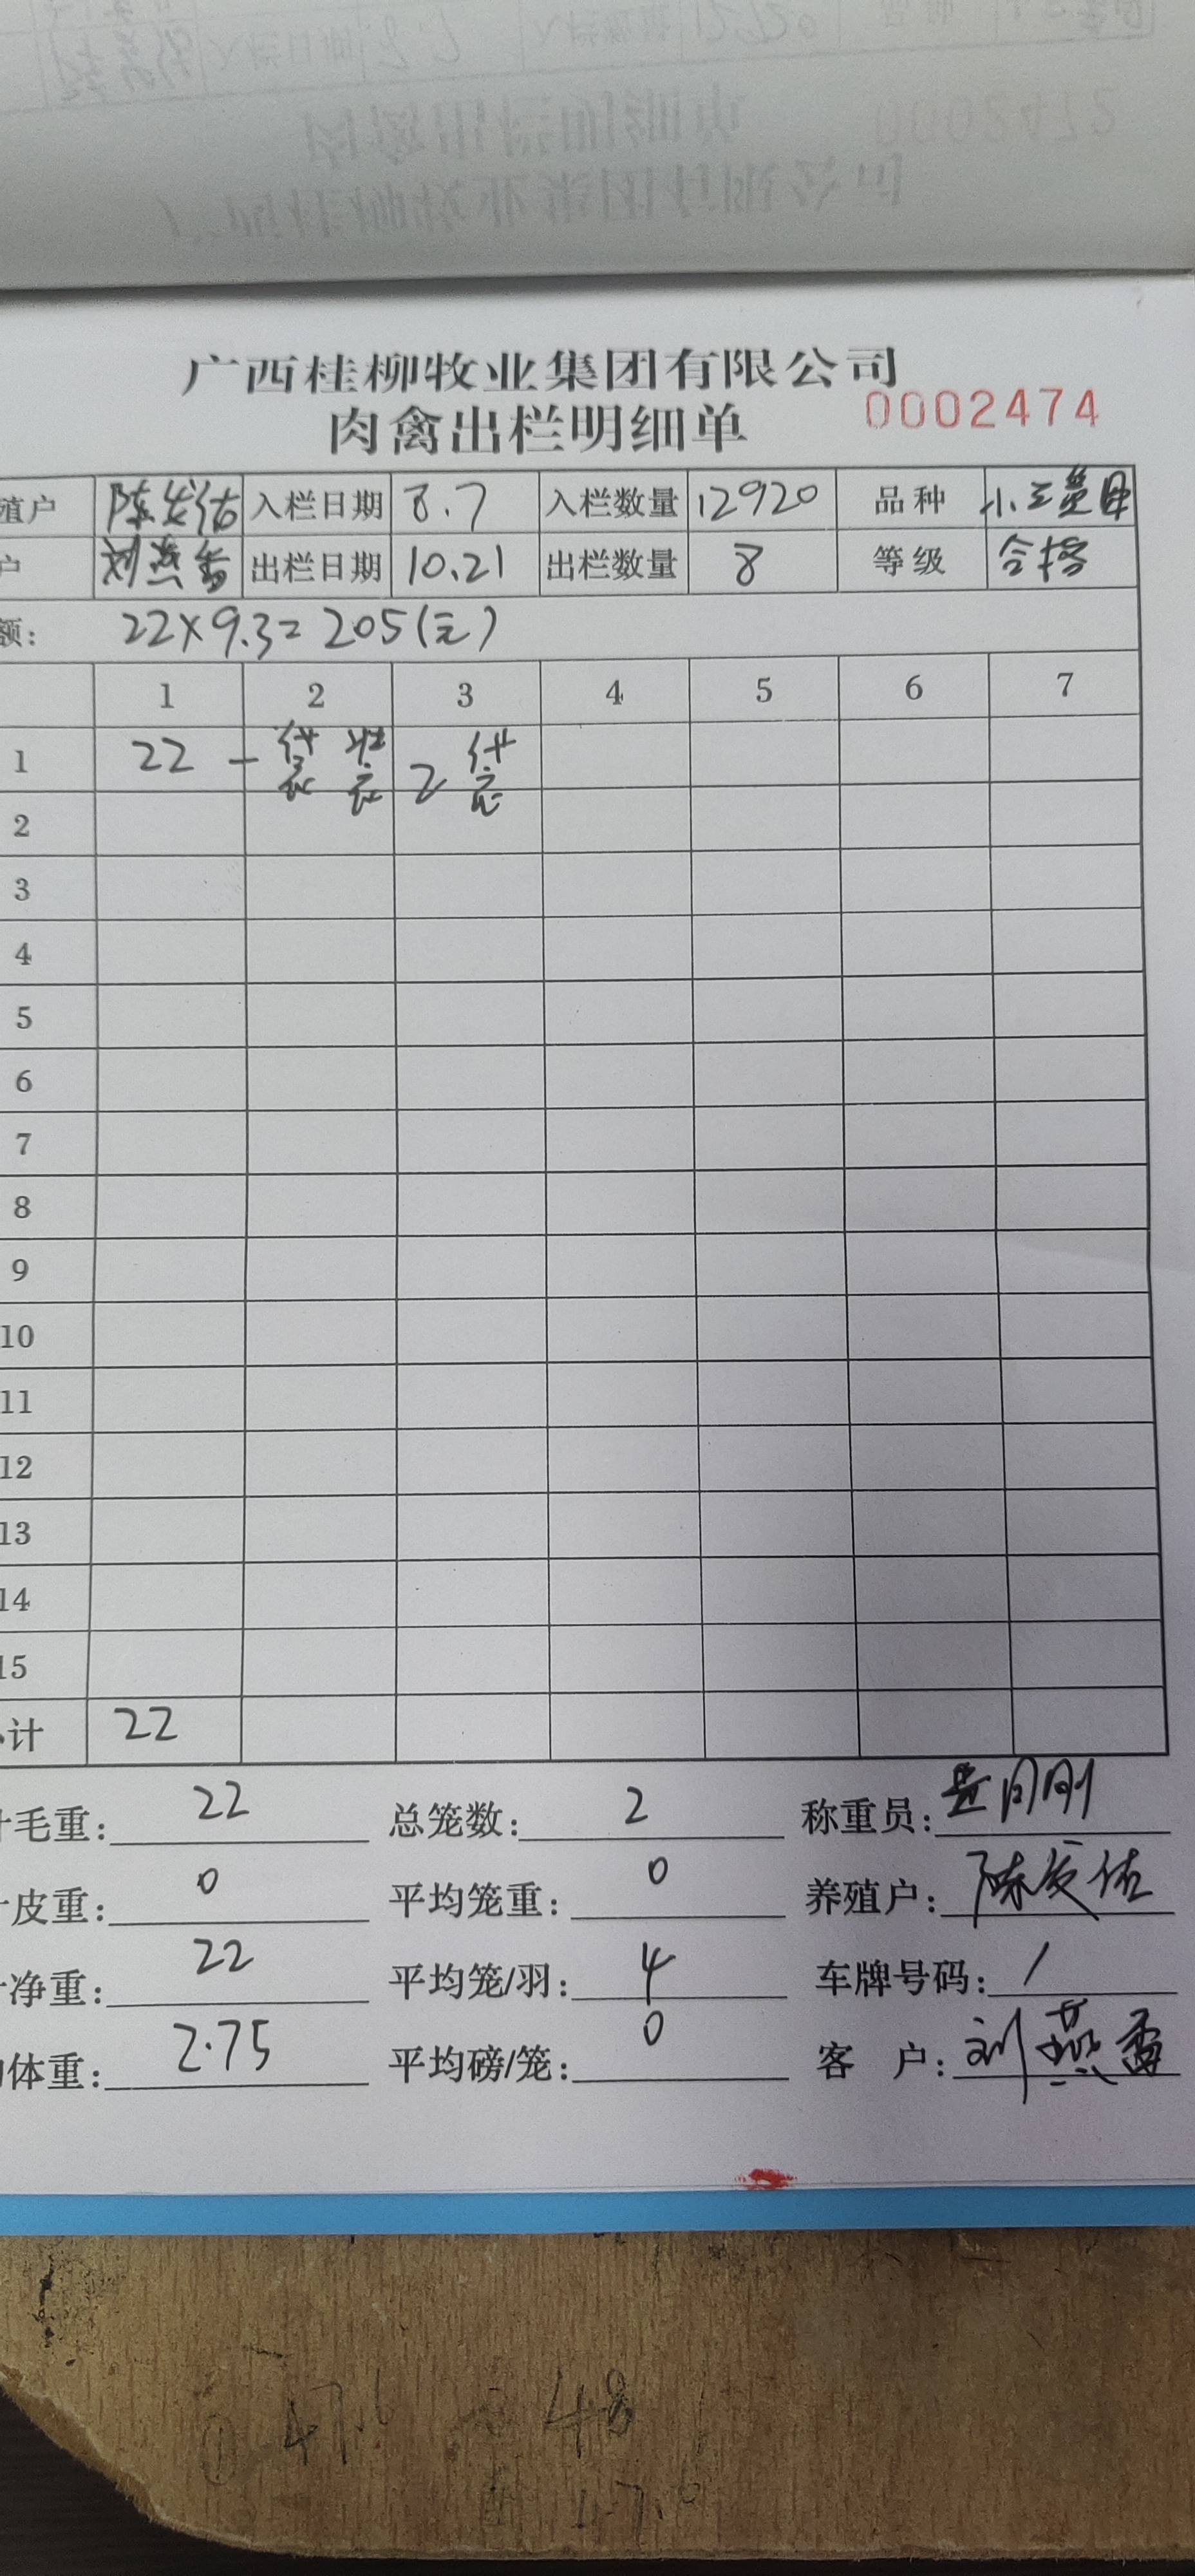 广西桂柳牧业集团有限公司
肉禽出栏明细单 0002474
殖户 陈发佑 入栏日期 8.7 入栏数量 12920 品种
户 刘燕 出栏日期 10.21 出栏数量 8 等级 合格
额: 22×9.3=205(元)
1 2 3 4 5 6 7
1 22 一袋装 2袋
2
3
4
5
6
7
8
9
10
11
12
13
14
15
小计 22
计毛重: 22 总笼数: 2 称重员:
计皮重: 0 平均笼重: 0 养殖户: 陈发佑
计净重: 22 平均笼/羽: 4 车牌号码: /
体重: 2.75 平均磅/笼: 0 客户: 刘燕
48